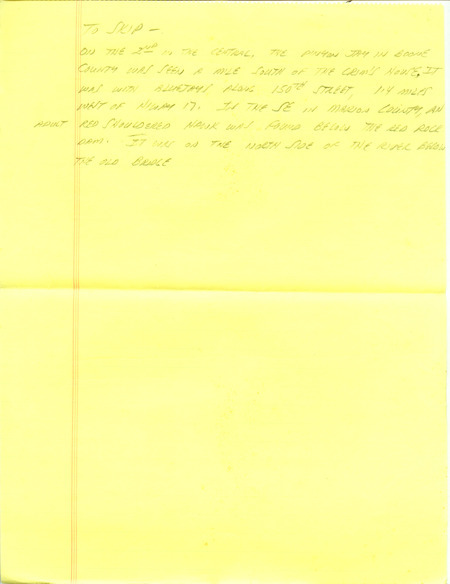 TO SKIP -
ON THE 2ND IN THE CENTRAL, THE PINYON JAY IN BOONE
COUNTY WAS SEEN A MILE SOUTH OF THE HOUSE, IT
WAS WITH BLUEJAYS ALONG 150TH STREET, 1.4 MILES
WEST OF HIWAY 17. IN THE SE IN MARION COUNTY, AN
ADULT RED SHOULDERED HAWK WAS FOUND BELOW THE RED ROCK
DAM. IT WAS ON THE NORTH SIDE OF THE RIVER BELOW
THE OLD BRIDGE